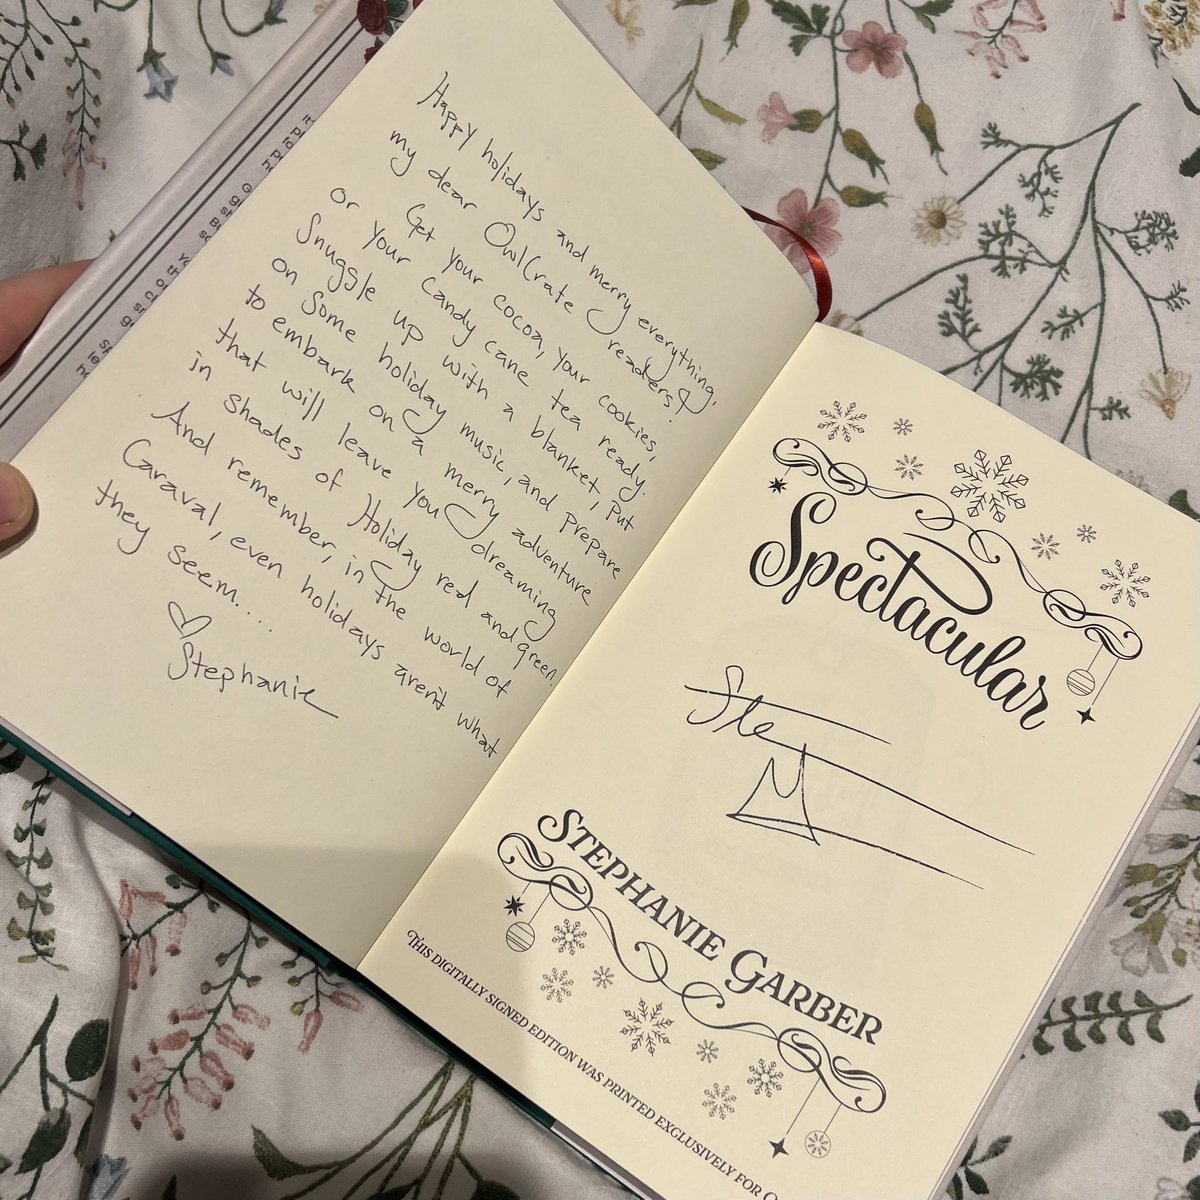 Happy holidays and merry everything,
my dear OwlCrate readers!
Get your cocoa, your cookies,
or your candy cane tea ready.
Snuggle up with a blanket, put
on some holiday music, and prepare
to embark on a merry adventure
that will leave you dreaming
in shades of Holiday red and green.
And remember, in the world of
Caraval, even holidays aren't what
they seem...
Stephanie
Spectacular
STEPHANIE GARBER
THIS DIGITALLY SIGNED EDITION WAS PRINTED EXCLUSIVELY FOR